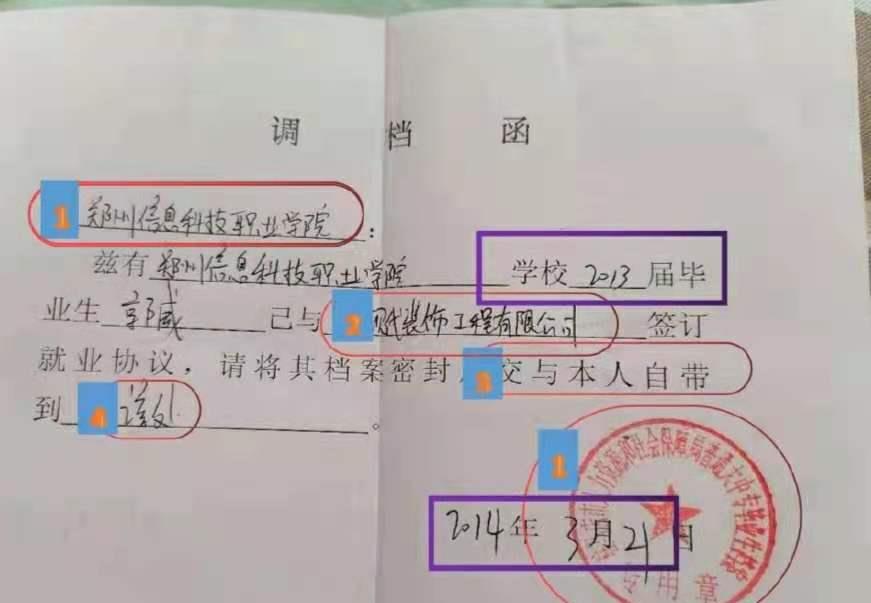 调档函
1 郑州信息科技职业学院:
兹有郑州信息科技职业学院学校2013届毕
业生郭威已与2代装饰工程有限公司签订
就业协议，请将其档案密封，3交与本人自带
到4。
1
力资源和社会保障局普通大中专学毕业生
2014年3月21日
专用章